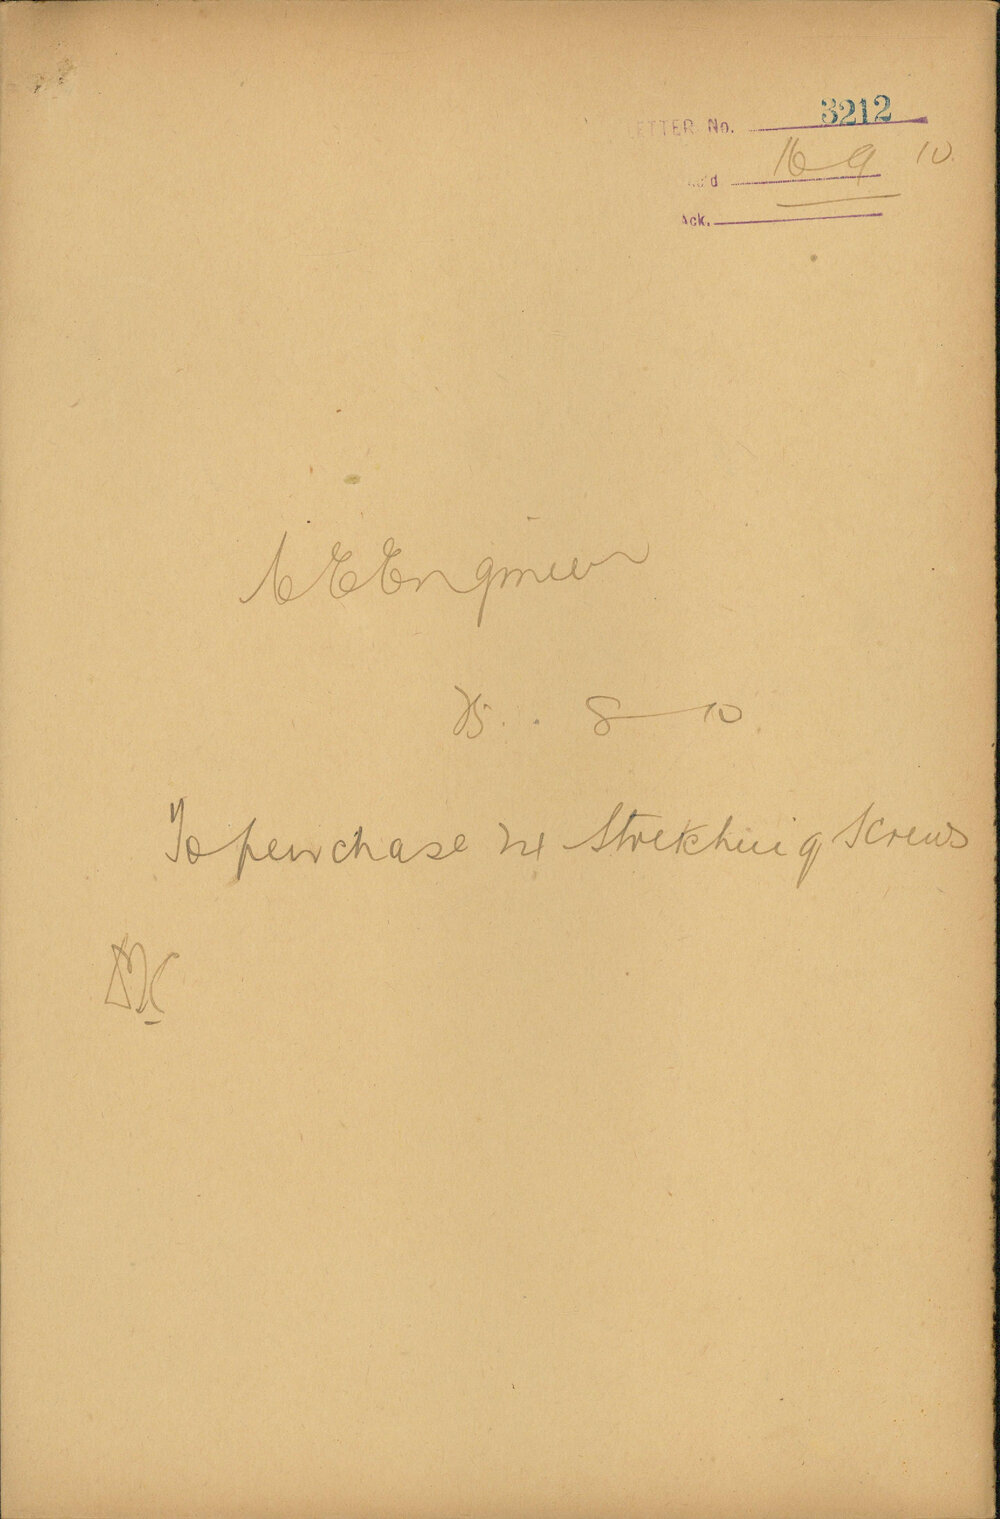 LETTER No. 3212
Rec'd 16 9 10
Ack.
C E Engineer
25. . 8 10
To purchase 24 Stretching Screws